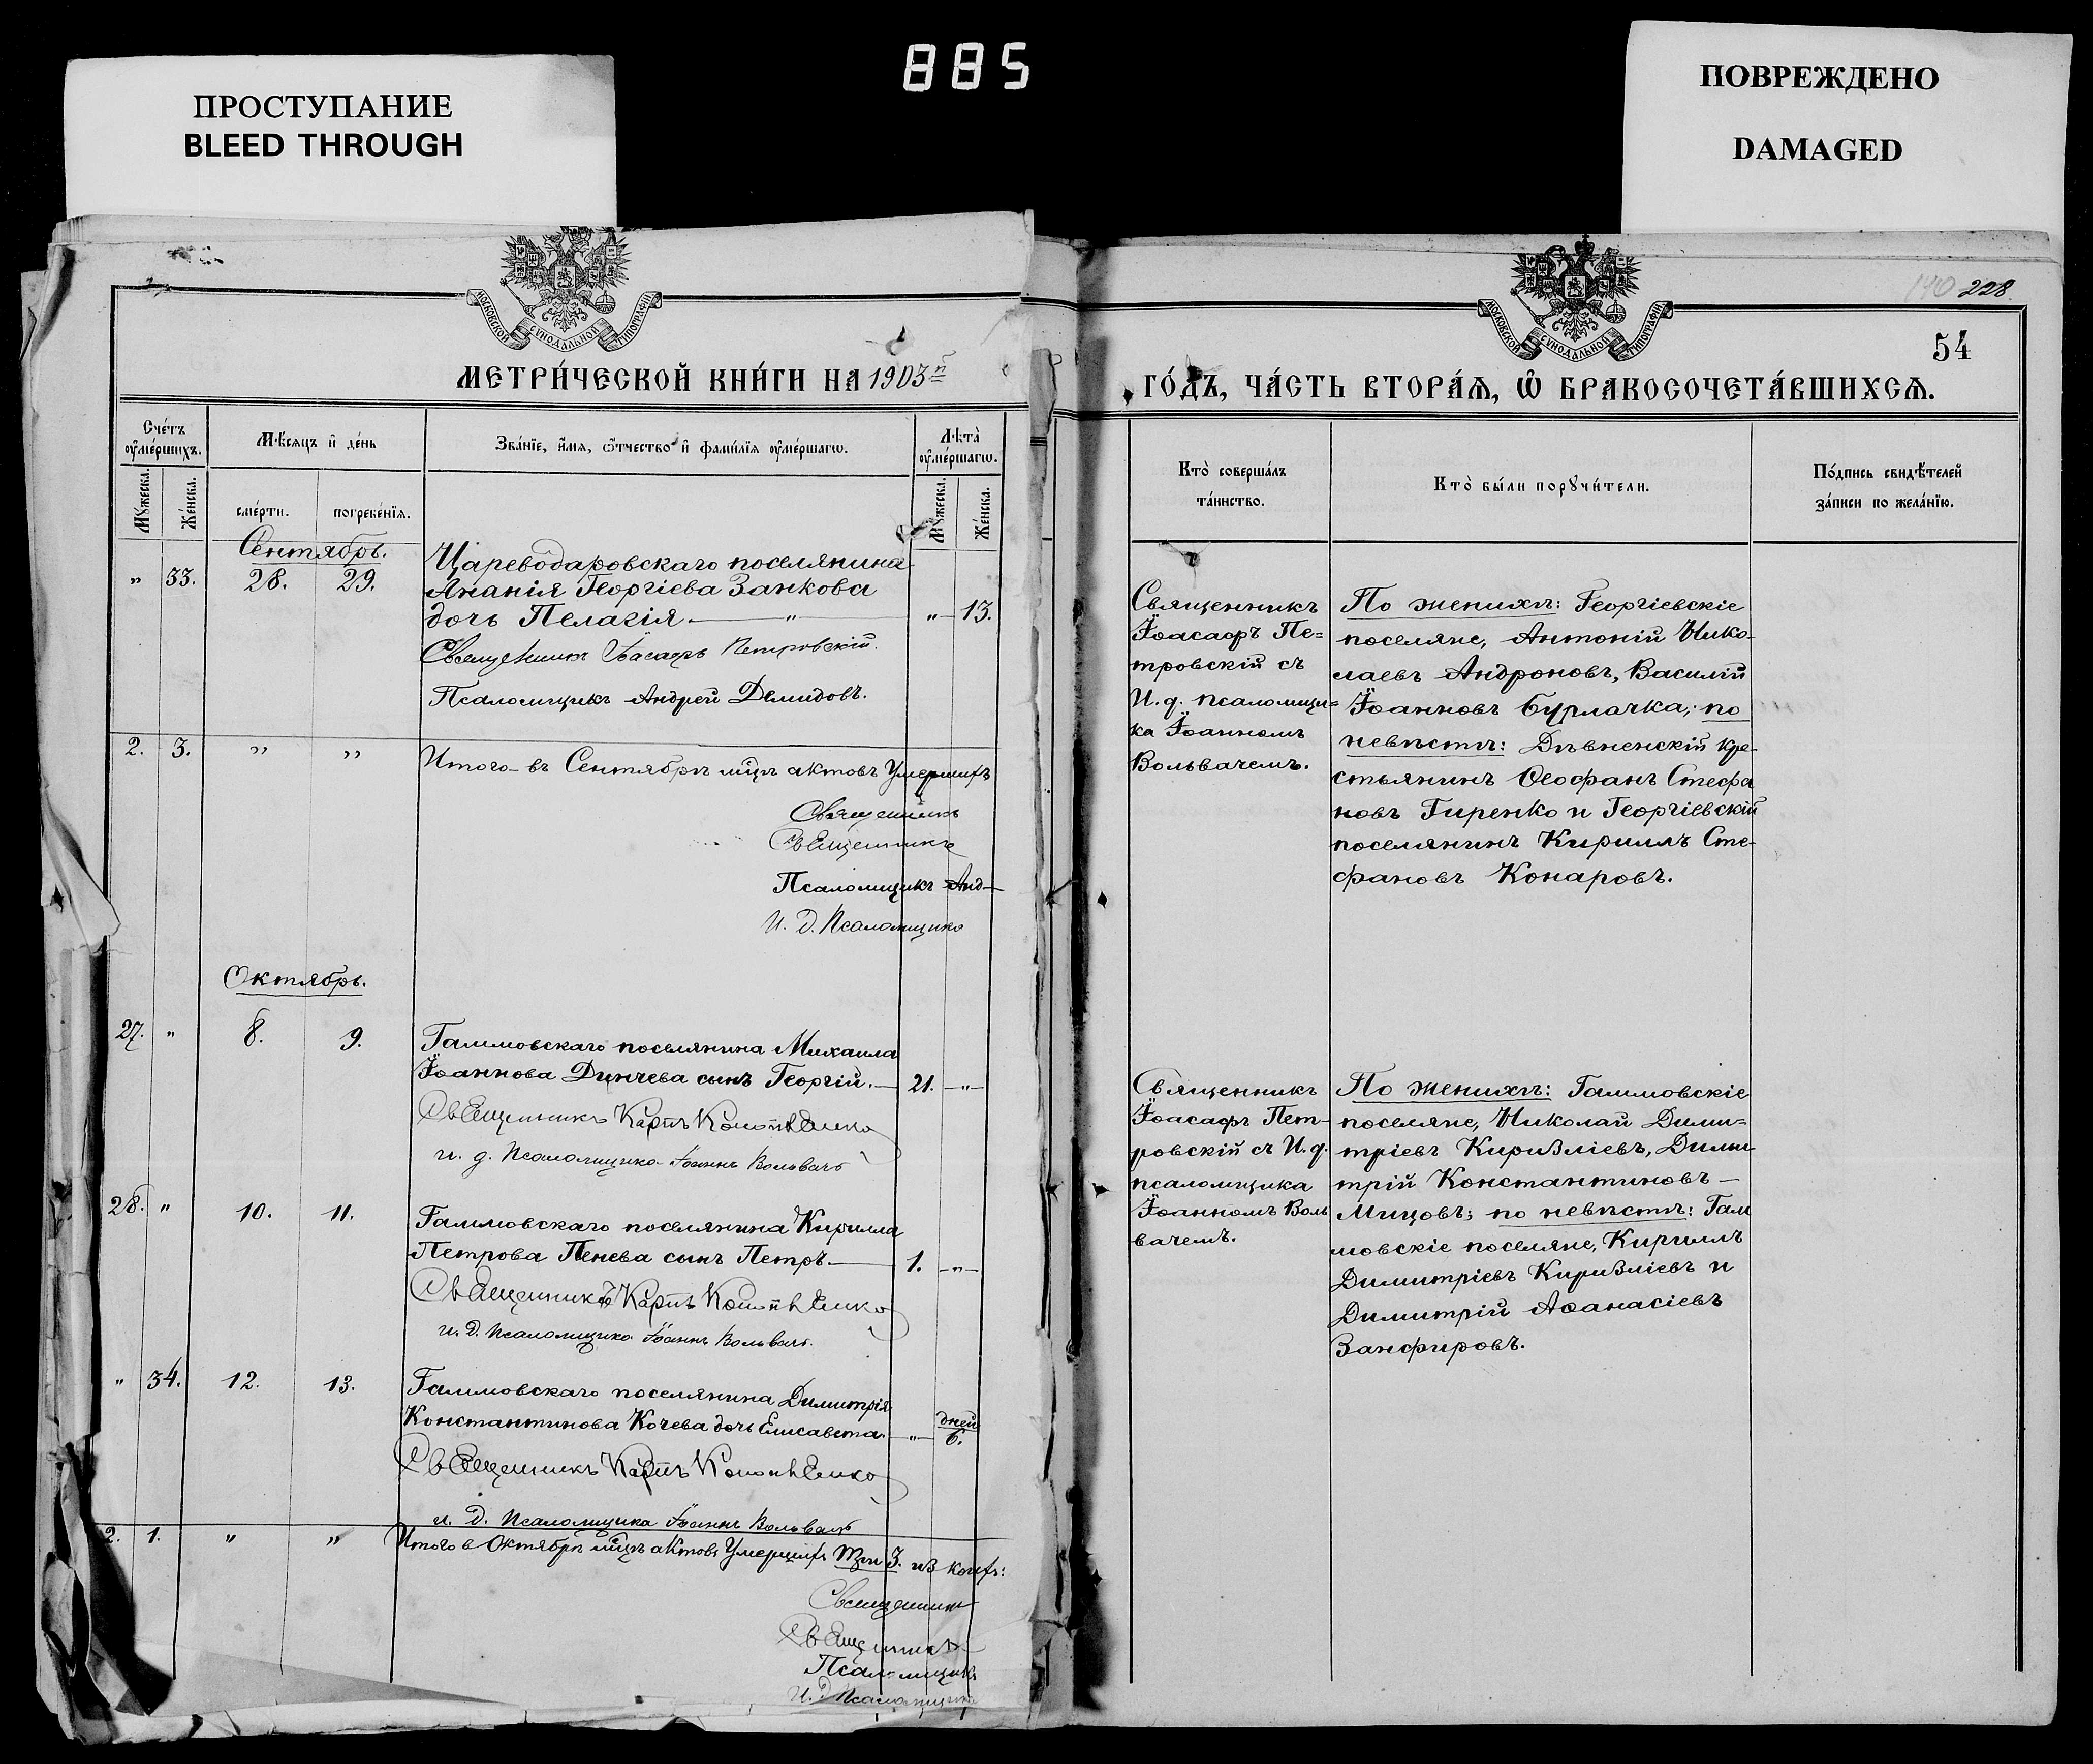 885
ПРОСТУПАНИЕ
BLEED THROUGH
ПОВРЕЖДЕНО
DAMAGED
МОСКОВСКОЙ СѴНОДАЛЬНОЙ ТИПОГРАФІИ
МЕТРИ́ЧЕСКОЙ КНИ́ГИ НА 1903й
Сче́тъ ᲂу҆ме́ршихъ.
Мѣ́сяцъ и҆ де́нь
Зва́нїе, и҆́мѧ, ѻ҆́тчество и҆ фами́лїѧ ᲂу҆ме́ршагѡ.
Лѣ́та ᲂу҆ме́ршагѡ.
Мꙋ́жеска.
Же́нска.
сме́рти.
погребе́нїѧ.
Мꙋ́жеска.
Же́нска.
Сентябрь.
„ 33. 28. 29. Цареводаровскаго поселянина
Ананія Георгіева Занкова
дочь Пелагія — „ — „ — 13.
Священникъ Іоасафъ Петровскій.
Псаломщикъ Андрей Демидовъ.
2. 3. „ „ Итого въ Сентябрѣ мцѣ актовъ Умершихъ
Священникъ
Священникъ
Псаломщикъ Анд-
И. д. Псаломщика
Октябрь.
27. „ 8. 9. Галимовскаго поселянина Михаила
Іоаннова Динчева сынъ Георгій. — 21. — „ —
Священникъ Карпъ
и. д. Псаломщика Іоаннъ Вольвачъ
28. „ 10. 11. Галимовскаго поселянина Кирилла
Петрова Пенева сынъ Петръ — 1. — „ —
Священникъ Карпъ
и. д. Псаломщика Іоаннъ Вольвачъ.
„ 34. 12. 13. Галимовскаго поселянина Димитрія
Константинова Кочева дочь Елисавета. — „ — дней 6.
Священникъ Карпъ
и. д. Псаломщика Іоаннъ Вольвачъ
2. 1. „ „ Итого в Октябрѣ мцѣ актовъ Умершихъ три 3. из коихъ:
Священникъ
Священникъ
Псаломщикъ
И. д. Псаломщика
МОСКОВСКОЙ СѴНОДАЛЬНОЙ ТИПОГРАФІИ
140 228
54
ГО́ДЪ, ЧА́СТЬ ВТОРА́Ѧ, Ѽ БРАКОСОЧЕТА́ВШИХСѦ.
Кто̀ соверша́лъ та́инство.
Кто̀ бы́ли порꙋчи́тели.
По́дпись свидѣ́телей за́писи по жела́нїю.
Священникъ
Іоасафъ Пе=
тровскій съ
И. д. псаломщи=
ка Іоанномъ
Вольвачемъ.
По женихѣ: Георгіевскіе
поселяне, Антоній Нико-
лаевъ Андроновъ, Василій
Іоанновъ Бурлачка; по
невѣстѣ: Дивненскій кре-
стьянинъ Ѳеофанъ Стефа
новъ Гиренко и Георгіевскій
поселянинъ Кириллъ Сте-
фановъ Конаровъ.
Священникъ
Іоасафъ Пет-
ровскій съ И. д.
псаломщика
Іоанномъ Воль
вачемъ.
По женихѣ: Галимовскіе
поселяне, Николай Дими=
тріевъ Кириз̾ліевъ, Дими
трій Константиновъ —
Мицовъ; по невѣстѣ: Гам
мовскіе поселяне, Кириллъ
Димитріевъ Киризліевъ и
Димитрій Аѳанасіевъ
Занфировъ.